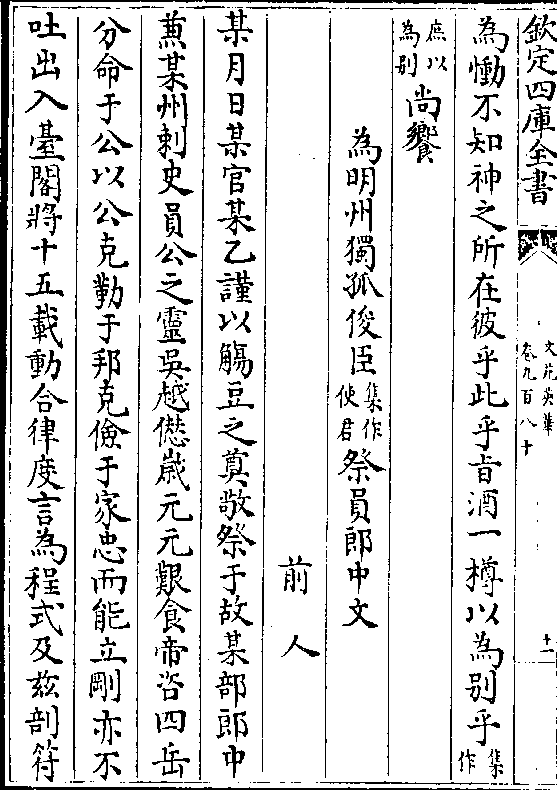 欽定四庫全書
文苑英華
卷九百八十
十一
為慟不知神之所在彼乎此乎㫖酒一樽以為别乎集作
庶以為别尚饗
為明州獨孤俊臣集作使君祭員郎中文
前人
某月日某官某乙謹以觴豆之奠敬祭于故某部郎中
兼某州刺史員公之靈吳越愆歲元元艱食帝咨四岳
分命于公以公克勤于邦克儉于家忠而能立剛亦不
吐出入臺閣將十五載動合律度言為程式及兹剖符